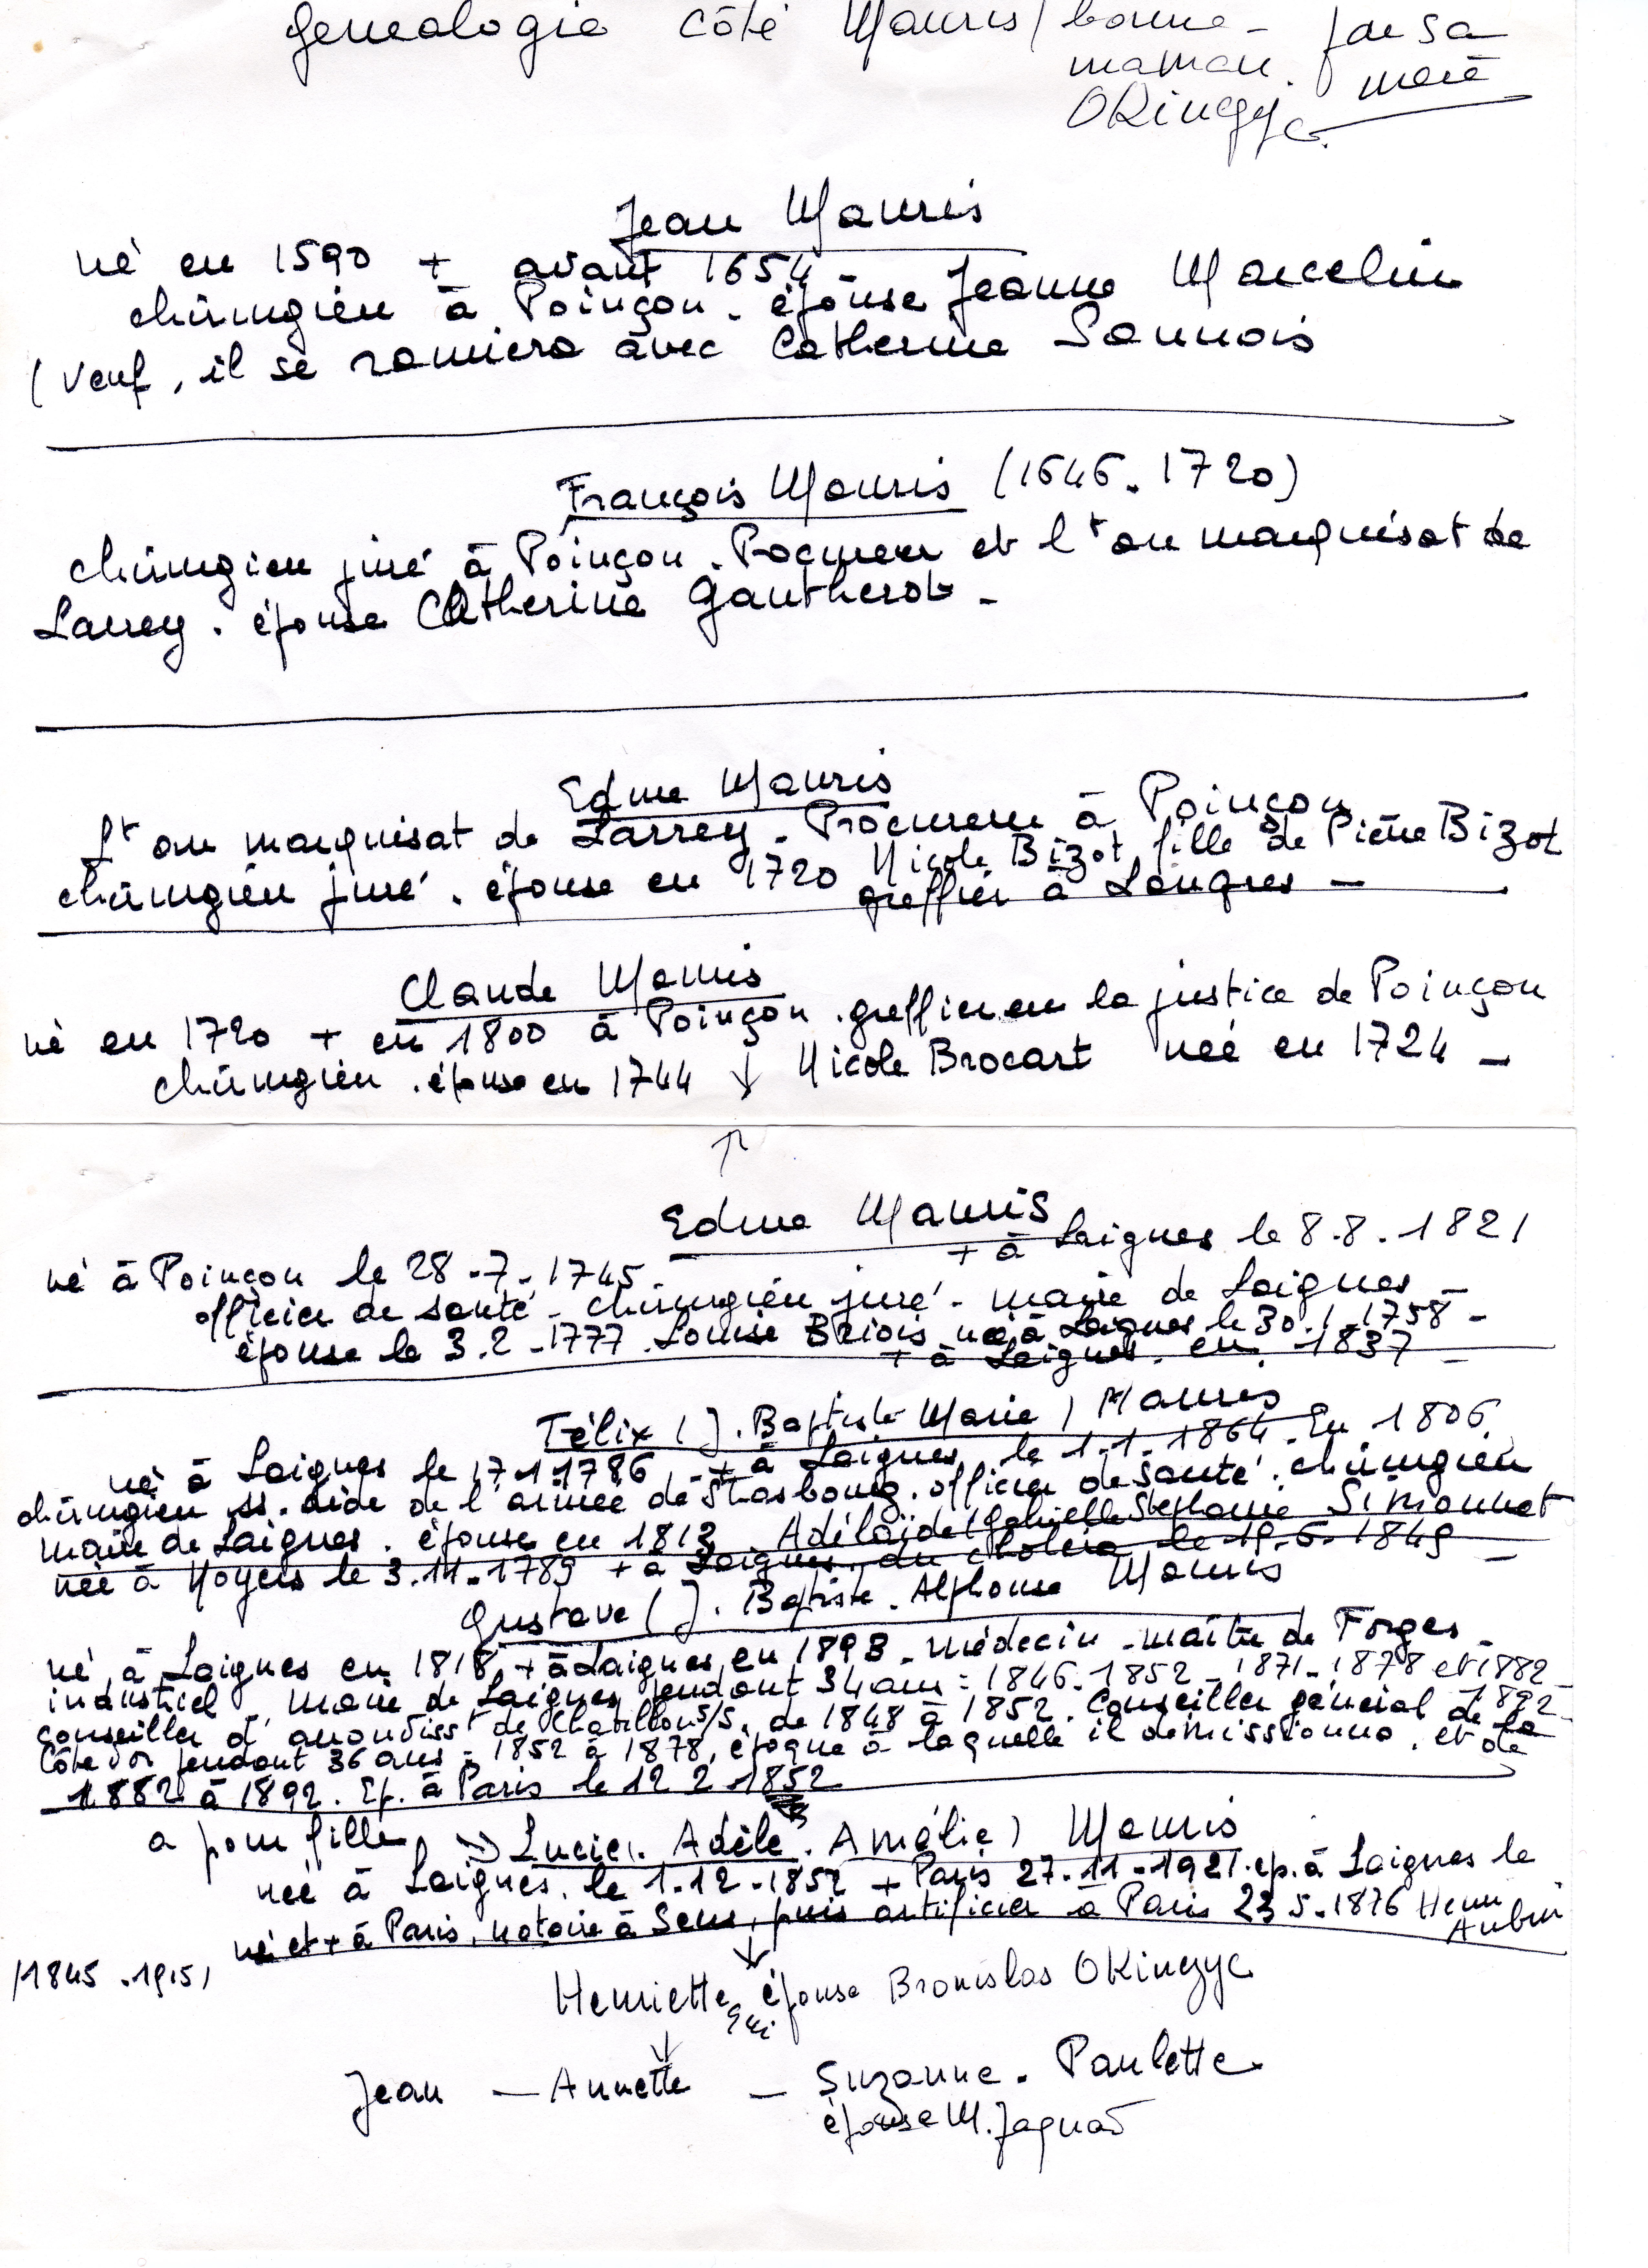 genealogie côté Mauris / bonne- par sa
maman. mère
Okinczyc.
Jean Mauris
né en 1590 + avant 1654 -
chirurgien à Poinçon. épouse Jeanne Marcelin
(veuf, il se remiera avec Catherine Sonnois
François Mauris (1646-1720)
chirurgien juré à Poinçon. Procureur et lt au marquisat de
Larrey. épouse Catherine Gautherot -
Edme Mauris
Lt au marquisat de Larrey - Procureur à Poinçon
chirurgien juré. épouse en 1720 Nicole Bizot, fille de Pierre Bizot
greffier à Langres -
Claude Mauris
né en 1720 + en 1800 à Poinçon. greffier en la justice de Poinçon
chirurgien. épouse en 1744 ↓ Nicole Brocart née en 1724 -
↑
Edme Mauris
né à Poinçon le 28-7-1745. + à Laignes le 8.8.1821
officier de santé - chirurgien juré - maire de Laignes -
épouse le 3.2-1777. Louise Briois née à Laignes le 30.1.1758 -
+ à Laignes. en. 1837 -
Félix (J. Baptiste Marie) Mauris
né à Laignes le 17.1.1786 - + à Laignes le 1.1.1864. En 1806
chirurgien ss. aide de l'armée de Strasbourg. officier de santé. chirurgien
maire de Laignes. épouse en 1813 Adélaïde (Gabrielle Stephanie Simonnet
née à Noyers le 3.11.1789 + à Laignes. du choléra le 19.6.1849 -
Gustave (J. Baptiste. Alphonse Mauris
né à Laignes en 1818, + à Laignes en 1893 - médecin - maître de Forges -
industriel - maire de Laignes pendant 34 ans : 1846-1852 - 1871-1878 et 1882-
1892-
conseiller d'arrondisst de Chatillon s/S. de 1848 à 1852. Conseiller général de la
Côte d'or pendant 36 ans - 1852 à 1878, époque à laquelle il démissionna. et de
1882 à 1892. Ep. à Paris le 12 2 1852
a pour fille → Lucie (. Adèle. Amélie) Mauris
née à Laignes. le 1-12-1852 + Paris 27-11-1921. ep. à Laignes le
né et + à Paris, notaire à Sens, puis artificier à Paris 23 5-1876 Henri
Aubin
(1845-1915)
↓
Henriette épouse Bronislas Okinczyc
↓
Jean - Annette - Suzanne. Paulette
épouse M. Jaquad